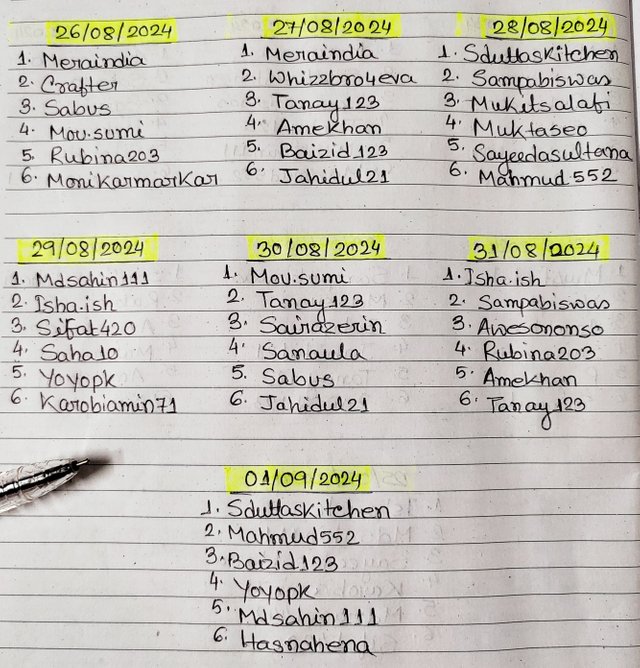 26/08/2024
1. Meraindia
2. Crafter
3. Sabus
4. Mou.sumi
5. Rubina203
6. Monikarmarkar
27/08/2024
1. Meraindia
2. Whizzbro4eva
3. Tanay123
4. Amekhan
5. Baizid123
6. Jahidul21
28/08/2024
1. Sduttaskitchen
2. Sampabiswas
3. Mukitsalafi
4. Muktaseo
5. Sayeedasultana
6. Mahmud552
29/08/2024
1. Mdsahin111
2. Isha.ish
3. Sifat420
4. Saha10
5. Yoyopk
6. Karobiamin71
30/08/2024
1. Mou.sumi
2. Tanay123
3. Sairazerin
4. Sanaula
5. Sabus
6. Jahidul21
31/08/2024
1. Isha.ish
2. Sampabiswas
3. Awesononso
4. Rubina203
5. Amekhan
6. Tanay123
01/09/2024
1. Sduttaskitchen
2. Mahmud552
3. Baizid123
4. Yoyopk
5. Mdsahin111
6. Hasnahena